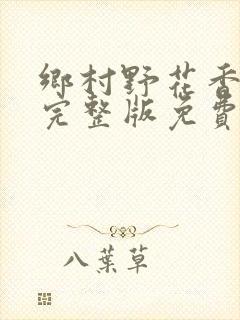 鄉村野花香
完整版免費
八葉草